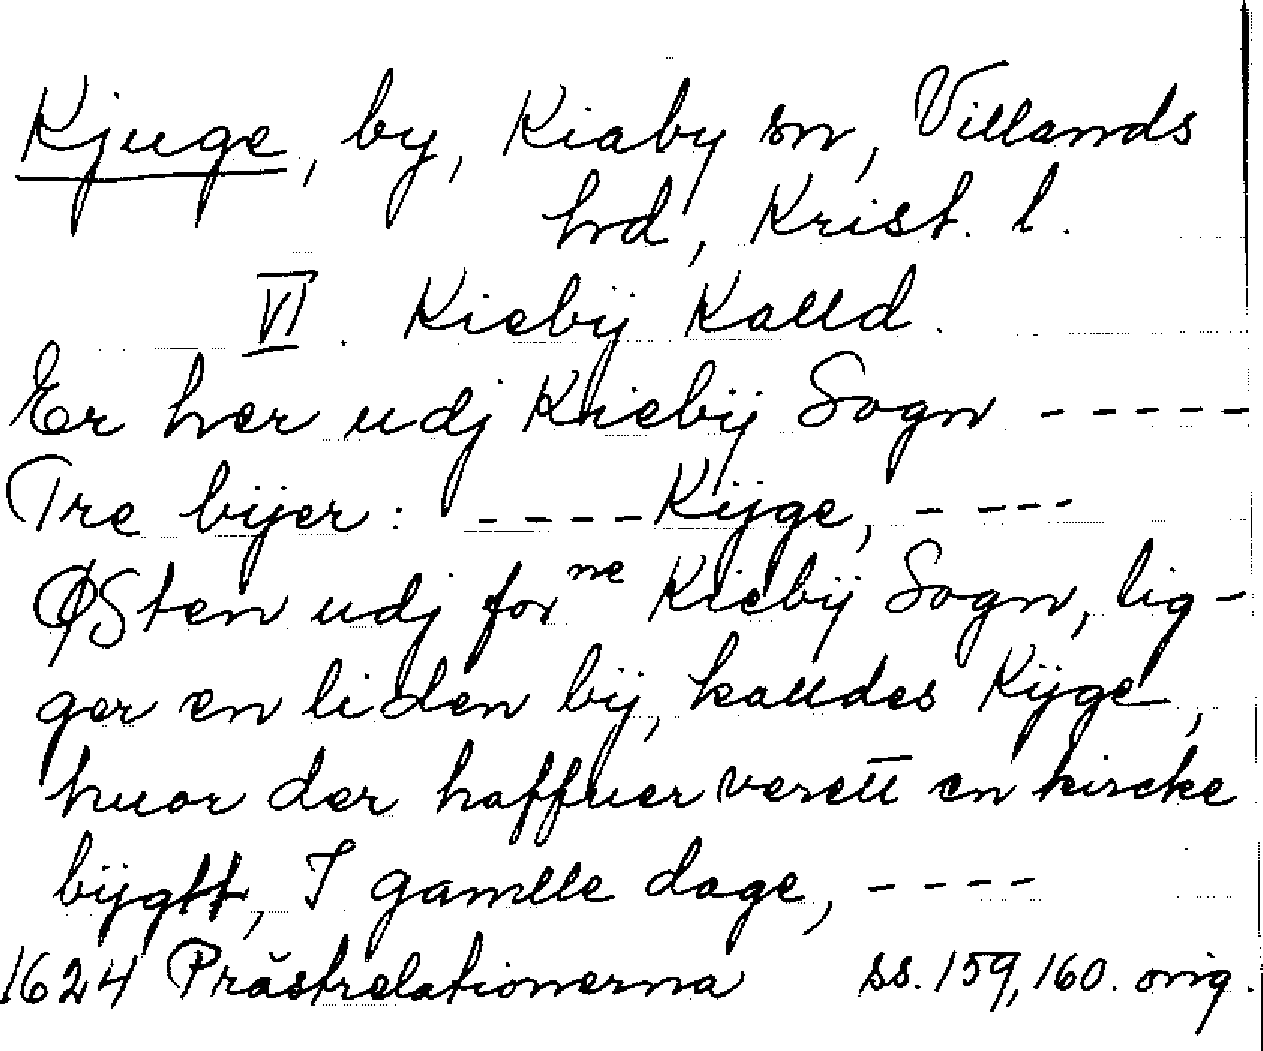 Kjuge, by, Kiaby sn, Villands
hrd, Krist. l.
VI. Kiebÿ Kalld.
Er her udj Kiebÿ Sogn -----
Tre bÿer: ---- Kÿge, ----
ØSten udj for ne Kiebÿ Sogn, lig-
ger en liden bÿ, kalldes Kÿge,
huor der haffuer verett en kircke
bÿgtt, I gamlle dage, ----
1624 Prästrelationerna ss. 159, 160. orig.